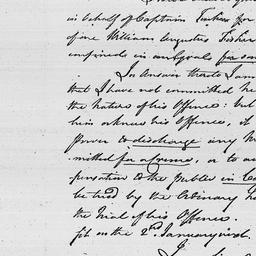 in behalf of Captain Fisher for
of one William Augustus Fisher
confined in our Gaols for som
In Answer thereto I am
that I have not committed he
the nature of his Offence: but
him acknow his Offence, it
power to discharge any
mitted for a crime, or to
pensation to the public in
be tried by the Ordinary
the trial of his Offence.
fit on the 2d. January inst.
I